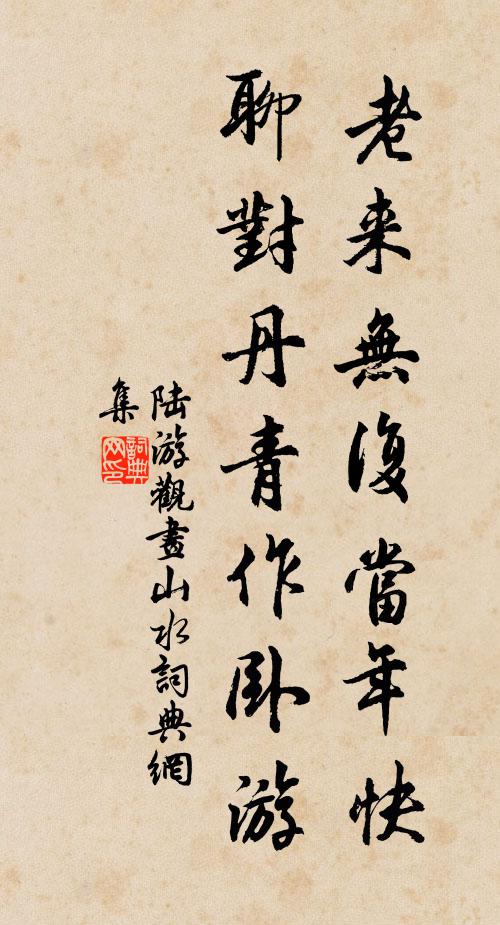 老来無復當年快
聊對丹青作卧游
陆游觀畫山水詞典網
集
詞典
网印